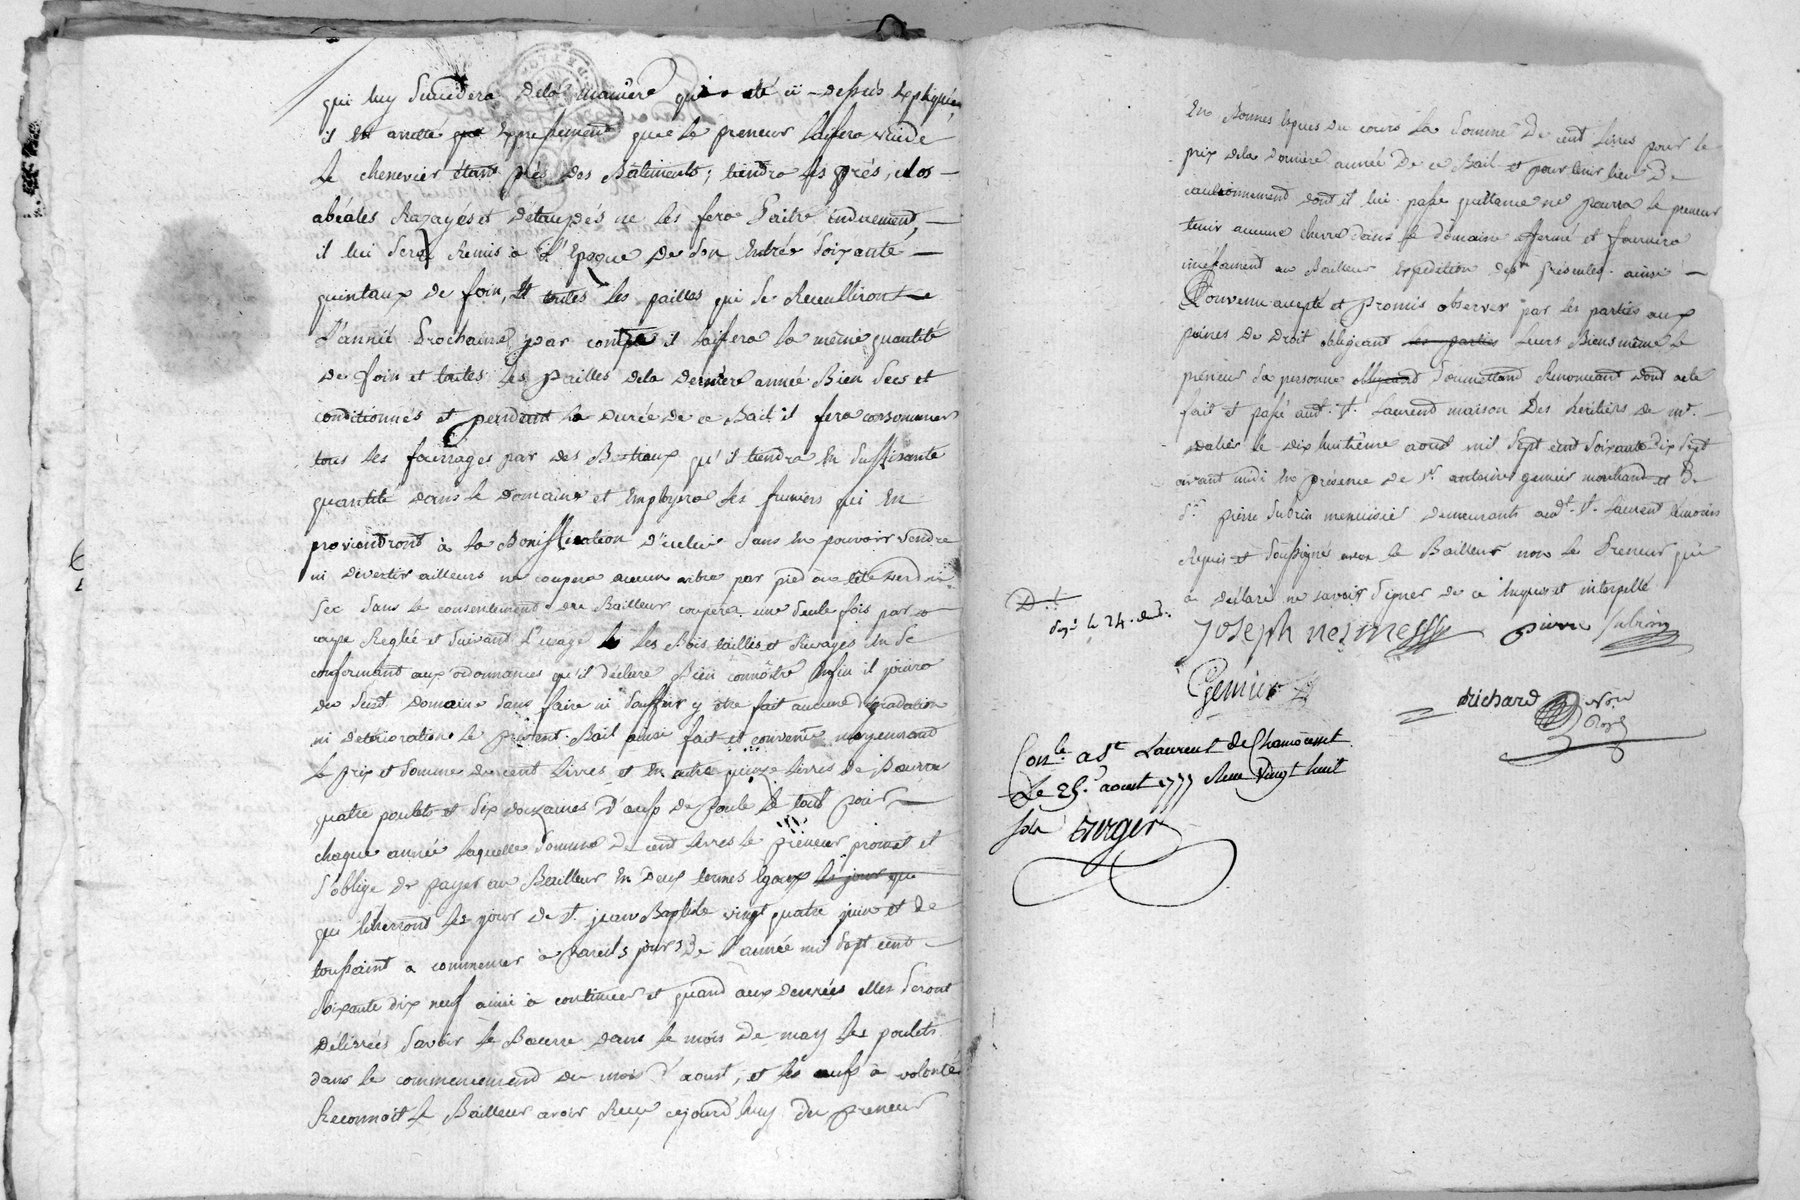 qui luy succedera dela maniere qui a eté ci-dessus expliquée,
il en arreté que expressement que le preneur laissera vuide
le chenevier étant près des Batiments; tiendra les prés, clos
abéalés Razayés et Détaupés ne les fera Paitre induement,
il lui sera Remis a l'Epoque de son Entrée soixante
quintaux de foin, et toutes les pailles qui se Receulliront
l'année Prochaine, par contre il laissera la même quantité
de foin et toutes les pailles dela derniere année Bien secs et
conditionnés et pendant la durée de ce Bail il fera consommer
tous les fourrages par des Bestiaux qu'il tiendra en suffisante
quantité dans le Domaine et Employera les fumiers qui en
proviendront à la Boniffication d'icelui sans en pouvoir vendre
ni divertir ailleurs ne coupera aucun arbre par pied ou tête verd ni
sec sans le consentement du Bailleur coupera une seule fois par
coupe Reglée et suivant l'usage les Bois taillés et Rivages en se
conformant aux ordonnances qu'il déclare Bien connoitre Enfin il jouira
du susd. Domaine sans faire ni souffrir y etre fait aucune dégradation
ni déterioration le présent Bail ainsi fait et convenu moyennand
le prix et somme de cent livres et en outre quinze livres de Beurre
quatre poulets et six douzaines d'oeufs de Poule le tout pour
chaque année laquelle somme de cent livres le preneur promet et
s'oblige de payer au Bailleur en deux termes Egaux le jour que
qui licherront les jours de St. jean Baptiste vingt quatre juin et de
toussaint a commencer à Pareils jours de l'année mil sept cent
soixante dix neuf ainsi à continuer et quand aux denrées elles seront
Délivrées savoir le Beurre dans le mois de may les poulets
dans le commencement du mois d'aoust, et les oeufs a volonté
Reconnoit le Bailleur avoir Reçu cejourd'huy du preneur
En Bonnes Espèces du cours la somme de cent livres pour le
prix dela derniere année de ce Bail et pour tenir lieu de
cautionnement dont il lui passe quittance ne pourra le preneur
tenir aucune chevre dans le domaine affermé et fournira
incessament au Bailleur Expedition des présentes. ainsi
Convenu accepté et promis observer par les parties aux
peines de Droit obligeant les parties leurs Biens même le
preneur sa personne obligeand soumettand Renonceant dond acte
fait et passé aud. St. Laurend maison des heritiers de mr.
dalier le dix huitième aoust mil sept cent soixante dix sept
avant midi en présence de sr. antoine genier marchand et de
sr. pierre subrin menuisier demeurants aud. St. Laurent témoins
Requis et soussigné avec le Bailleur non le Preneur qui
a déclaré ne savoir signer de ce Enquis et interpellé
D.
le 24. aud.
Joseph nesmess pierre subrin
Genier
Richard Nre
Royal
Con.le a St Laurent de Chamousset
Le 25. aoust 1777 Reçu Vingt huit
sols Burger